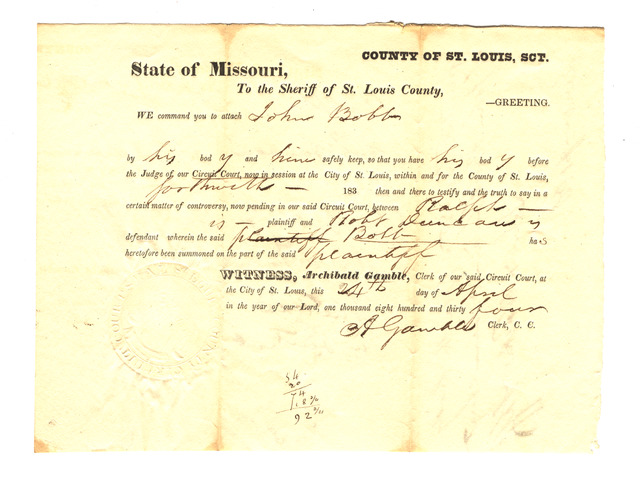 COUNTY OF ST. LOUIS, SCT.
State of Missouri,
To the Sheriff of St. Louis County,
—GREETING.
WE command you to attach John Bobb
by his bod y and him safely keep, so that you have his bod y before
the Judge of our Circuit Court, now in session at the City of St. Louis, within and for the County of St. Louis,
forthwith — 183 then and there to testify and the truth to say in a
certain matter of controversy, now pending in our said Circuit Court, between Ralph —
is — plaintiff and Robt Duncan is
defendant wherein the said plaintiff Bobb ha s
heretofore been summoned on the part of the said plaintiff
WITNESS, Archibald Gamble, Clerk of our said Circuit Court, at
the City of St. Louis, this 24th day of April
in the year of our Lord, one thousand eight hundred and thirty four
A Gamble Clerk, C. C.
54
20